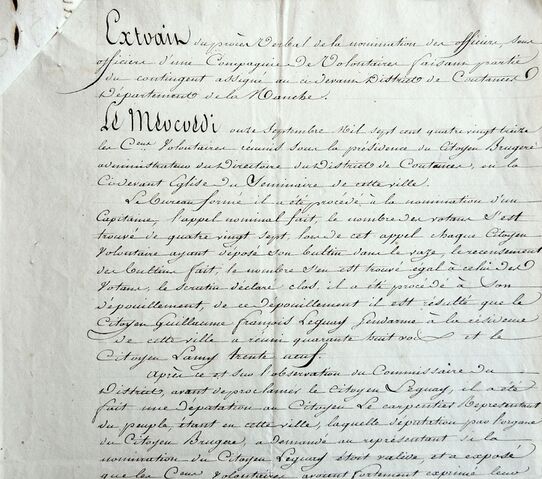 Extrait du procès Verbal de la nomination des officiers, sous
officiers d'une Compagnie de Volontaires faisant partie
du contingent assigné au ci devant District de Coutances
Département de la Manche.
Le Mercredi onze Septembre Mil sept cent quatre vingt treize
les C.ens Volontaires réunis sous la présidence du Citoyen Brugere
administrateur du Directoire du District de Coutances, en la
Cidevant Eglise du Seminaire de cette ville.
Le Bureau formé il a été procédé à la nomination d'un
Capitaine, l'appel nominal fait, le nombre des votans s'est
trouvé de quatre vingt sept, lors de cet appel chaque Citoyen
Volontaire ayant déposé son bultin dans le vaze, le recensement
des bultins fait, le nombre s'en est trouvé égal à celui des
Votans, le scrutin déclaré clos, il a été procédé à son
dépouillement, de ce dépouillement il est résulté que le
Citoyen Guillaume François Leguay Gendarme à la résidence
de cette ville a réuni quarante huit voix et le
Citoyen Lamy trente neuf.
Après ce et sur l'observation du Commissaire du
District, avant de proclamer le Citoyen Leguay, il a été
fait une députation au Citoyen Le carpentier Représentant
du peuple, étant en cette ville, laquelle députation par l'organe
du Citoyen Brugere, a demandé au représentant si la
nomination du Citoyen Leguay étoit valide et a exposé
que les C.ens Volontaires avoient fortement exprimé leur